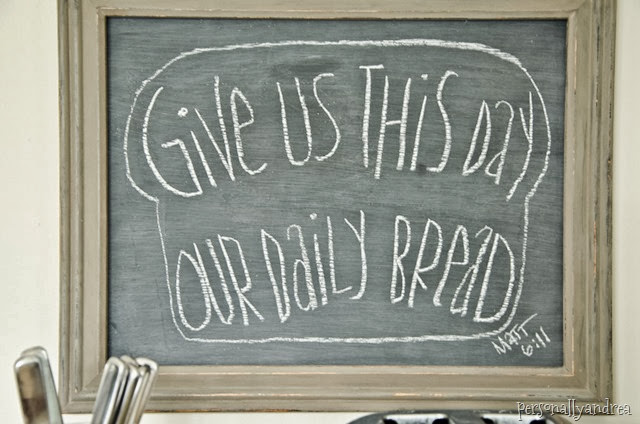 Give us this day
our daily bread
Matt
6:11
personallyandrea